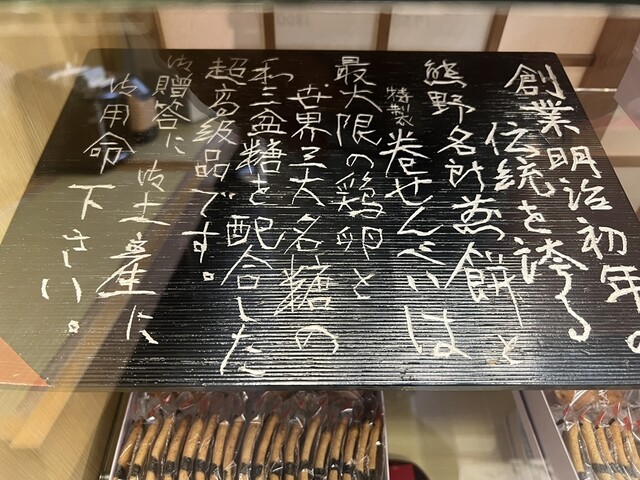 創業明治初年。
伝統を誇る
熊野名所煎餅と
特製巻せんべいは
最大限の鶏卵と
世界三大名糖の
和三盆糖を配合した
超高級品です。
御贈答に御土産に
御用命下さい。